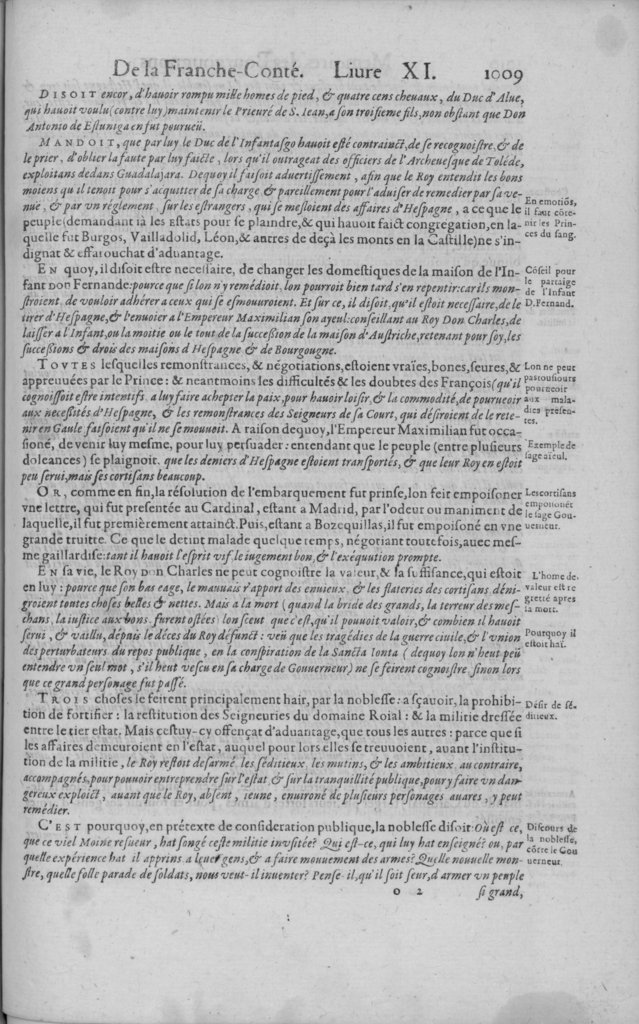 De la Franche-Conté. Liure XI. 1009
DISOIT encor, d'hauoir rompu mille homes de pied, & quatre cens cheuaux, du Duc d'Alue,
qui hauoit voulu (contre luy) maintenir le Prieuré de S. Iean, a son troisieme fils, non obstant que Don
Antonio de Estuniga en fut pourueü.
MANDOIT, que par luy le Duc de l'Infantasgo hauoit esté contrainct, de se recognoistre, & de
le prier, d'oblier la faute par luy faicte, lors qu'il outrageat des officiers de l'Archeuesque de Toléde,
exploitans dedans Guadalajara. Dequoy il faisoit aduertissement, afin que le Roy entendit les bons
moiens qu il tenoit pour s'acquitter de sa charge & pareillement pour l'aduiser de remedier par sa ve-
nue, & par vn réglement, sur les estrangers, qui se mesloient des affaires d'Hespagne, a ce que le
peuple (demandant ià les Estats pour se plaindre, & qui hauoit faict congrégation, en la-
quelle fut Burgos, Vailladolid, Léon, & autres de deçà les monts en la Castille) ne s'in-
dignat & effarouchat d'aduantage.
En emotiõs,
il faut côte-
nir les Prin-
ces du sang.
EN quoy, il disoit estre necessaire, de changer les domestiques de la maison de l'In-
fant DON Fernande: pource que si lon n'y remédioit, lon pourroit bien tard s'en repentir: car ils mon-
stroient, de vouloir adhérer a ceux qui se esmouuroient. Et sur ce, il disoit, qu'il estoit necessaire, de le
tirer d'Hespagne, & l'enuoier a l'Empereur Maximilian son ayeul: conseillant au Roy Don Charles, de
laisser a l'Infant, ou la moitie ou le tout de la succession de la maison d'Austriche, retenant pour soy, les
successions & drois des maisons d Hespagne & de Bourgougne.
Côseil pour
le partaige
de l'Infant
D. Fernand.
TOVTES lesquelles remonstrances, & négotiations, estoient vraïes, bones, seures, &
appreuuées par le Prince: & neantmoins les difficultés & les doubtes des François (qu'il
cognoissoit estre intentifs a luy faire achepter la paix, pour hauoir loisir, & la commodité, de pourueoir
aux necessités d'Hespagne, & les remonstrances des Seigneurs de sa Court, qui désiroient de le rete-
nir en Gaule faisoient qu'il ne se mouueit. A raison dequoy, l'Empereur Maximilian fut occa-
sioné, de venir luy mesme, pour luy persuader: entendant que le peuple (entre plusieurs
doleances) se plaignoit. que les deniers d'Hespagne estoient transportés, & que leur Roy en estoit
peu serui, mais ses cortisans beaucoup.
Lon ne peut
pastousiours
pourueoir
aux mala-
dies présen-
tes.
Exemple de
sage aïeul.
OR, comme en fin, la résolution de l'embarquement fut prinse, lon feit empoisoner
vne lettre, qui fut presentée au Cardinal, estant a Madrid, par l'odeur ou maniment de
laquelle, il fut premièrement attainct. Puis, estant a Bozequillas, il fut empoisoné en vne
grande truitte. Ce que le detint malade quelque temps, négotiant toutefois, auec mes-
me gaillardise: tant il hauoit l'esprit vif. le iugement bon, & l'exéquution prompte.
Les cortisans
empoisonét
le sage Gou-
uerneur.
EN sa vie, le Roy DON Charles ne peut cognoistre la valeur, & sa suffisance, qui estoit
en luy: pource que son bas eage, le mauuais r'apport des enuieux & les flateries des cortisans déni-
groient toutes choses belles & nettes. Mais a la mort (quand la bride des grands, la terreur des mes-
chans, la iustice aux bons furent ostées) lon sceut que c'est, qu'il pouuoit valoir, & combien il hauoit
serui, & vaillu, dépuis le décés du Roy défunct: veü que les tragédies de la guerre ciuile, & l'vnion
des perturbateurs du repos publique, en la conspiration de la Sancta Ionta (dequoy lon n'heut peü
entendre vn seul mot, s'il heut vescu en sa charge de Gouuerneur) ne se feirent cognoistre sinon lors
que ce grand personage fut passé.
L'home de
valeur est re
gretté apres
la mort.
Pourquoy il
estoit haï.
TROIS choses le feirent principalement hair, par la noblesse: a sçauoir, la prohibi-
tion de fortifier: la restitution des Seigneuries du domaine Roial: & la militie dressée
entre le tier estat. Mais cestuy-cy offençat d'aduantage, que tous les autres: parce que si
les affaires demeuroient en l'estat, auquel pour lors elles se treuuoient, auant l'institu-
tion de la militie, le Roy restoit desarmé les séditieux, les mutins, & les ambitieux au contraire,
accompagnés, pour pouuoir entreprendre sur l'estat & sur la tranquillité publique, pour y faire vn dan-
gereux exploict, auant que le Roy, absent, ieune, enuironé de plusieurs personages auares, y peut
remédier.
Désir de sé-
ditieux.
C'EST pourquoy, en prétexte de consideration publique, la noblesse disoit: Où est ce,
que ce viel Moine resueur, hat songé ceste militie invsitée? Qui est-ce, qui luy hat enseigné? ou, par
quelle expérience hat il apprins a leuer gens, & a faire mouuement des armes? Quelle nouuelle mon-
stre, quelle folle parade de soldats, nous veut-il inuenter? Pense-il, qu'il soit seur, d'armer vn peuple
Discours de
la noblesse,
côtre le Gou
uerneur.
o 2 si grand,